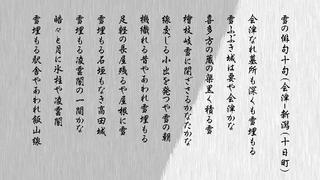 雪の俳句十句(会津~新潟(十日町)
会津なれ墓所も深くも雪埋もる
雪ふぶき城は要や会津かな
喜多方の蔵の梁黒く積る雪
檜枝岐雪に閉ざさるかなたかな
線変じる小出を発つや雪の朝
機織れる昔やあわれ雪埋もる
足軽の長屋残るや屋根に雪
雪埋もる石垣もなき高田城
雪埋もる凌雲閣の一間かな
皓々と月に氷柱や凌雲閣
雪埋もる駅舎やあわれ飯山線